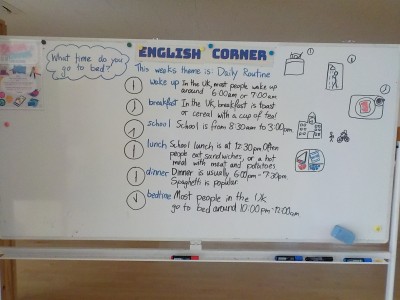 What time do you
go to bed?
ENGLISH CORNER
This weeks theme is: Daily Routine
wake up In the UK, most people wake up
around 6:00am or 7:00am
breakfast In the UK, breakfast is toast
or cereal with a cup of tea!
school School is from 8:30am to 3:00pm
lunch School lunch is at 12:30pm. Often
people eat sandwiches, or a hot
meal with meat and potatoes
dinner Dinner is usually 6:00pm - 7:30pm.
Spaghetti is popular
bedtime Most people in the UK
go to bed around 10:00pm-12:00am